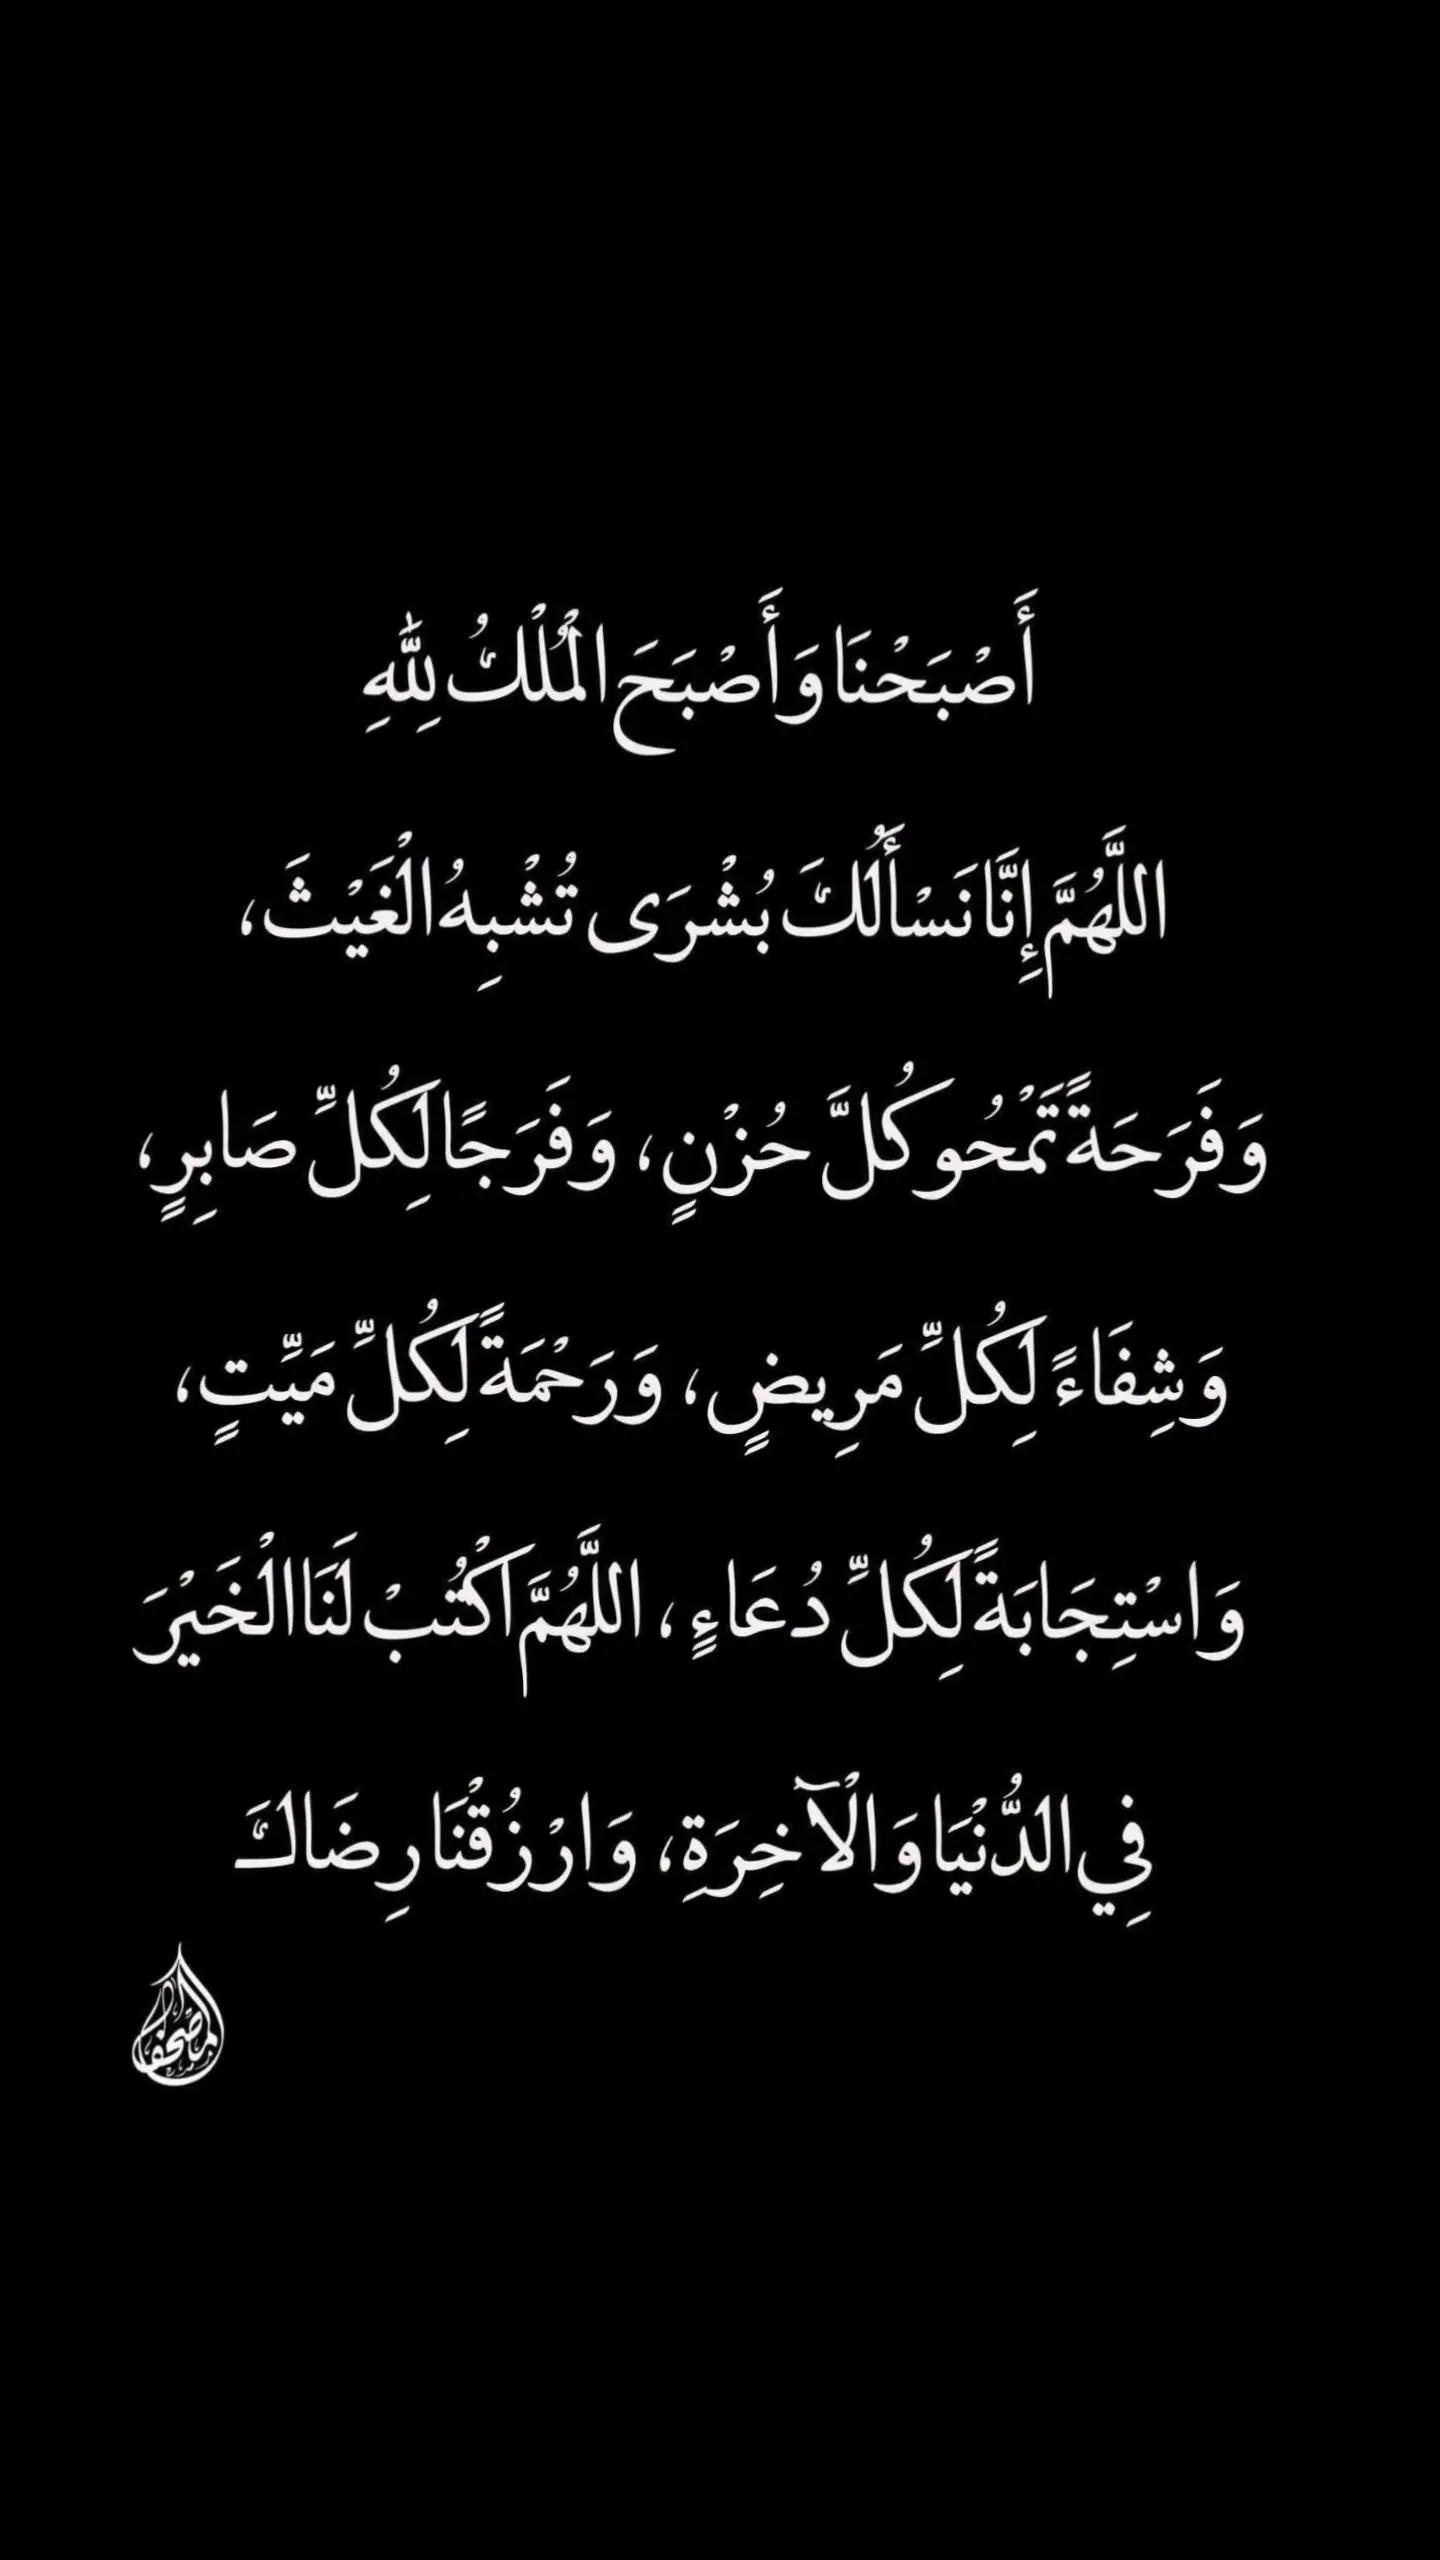 أَصْبَحْنَا وَأَصْبَحَ الْمُلْكُ لِلَّهِ
اللَّهُمَّ إِنَّا نَسْأَلُكَ بُشْرَى تُشْبِهُ الْغَيْثَ،
وَفَرَحَةً تَمْحُو كُلَّ حُزْنٍ، وَفَرَجًا لِكُلِّ صَابِرٍ،
وَشِفَاءً لِكُلِّ مَرِيضٍ، وَرَحْمَةً لِكُلِّ مَيِّتٍ،
وَاسْتِجَابَةً لِكُلِّ دُعَاءٍ، اللَّهُمَّ اكْتُبْ لَنَا الْخَيْرَ
فِي الدُّنْيَا وَالْآخِرَةِ، وَارْزُقْنَا رِضَاكَ